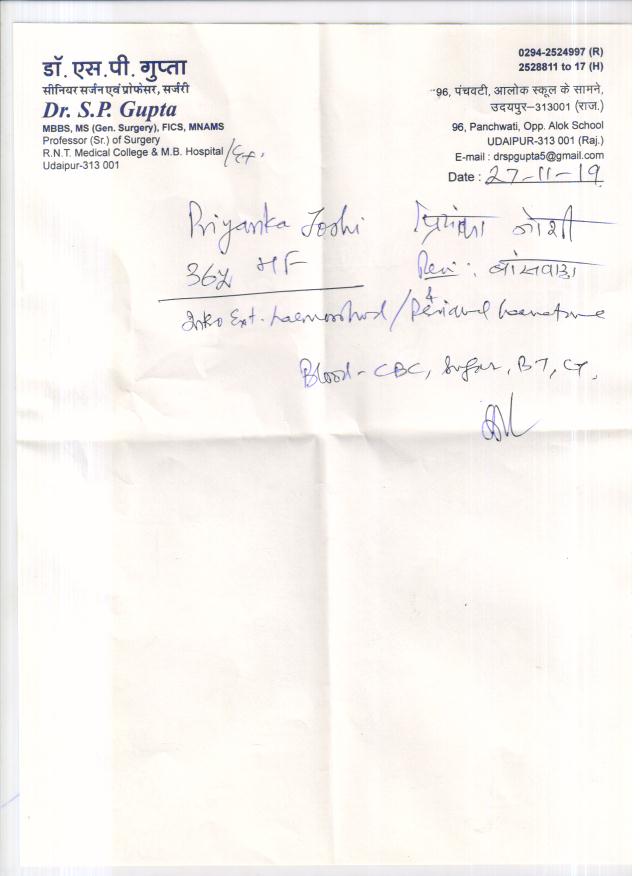 डॉ. एस.पी. गुप्ता
सीनियर सर्जन एवं प्रोफेसर, सर्जरी
Dr. S.P. Gupta
MBBS, MS (Gen. Surgery), FICS, MNAMS
Professor (Sr.) of Surgery
R.N.T. Medical College & M.B. Hospital /Ex.
Udaipur-313 001
0294-2524997 (R)
2528811 to 17 (H)
96, पंचवटी, आलोक स्कूल के सामने,
उदयपुर–313001 (राज.)
96, Panchwati, Opp. Alok School
UDAIPUR-313 001 (Raj.)
E-mail : drspgupta5@gmail.com
Date : 27-11-19
Priyanka Joshi प्रियंका जोशी
36y F
बांसवाड़ा
Ext. haemorrhoid / Perianal haematoma
Blood - CBC, Sugar, BT, CT.